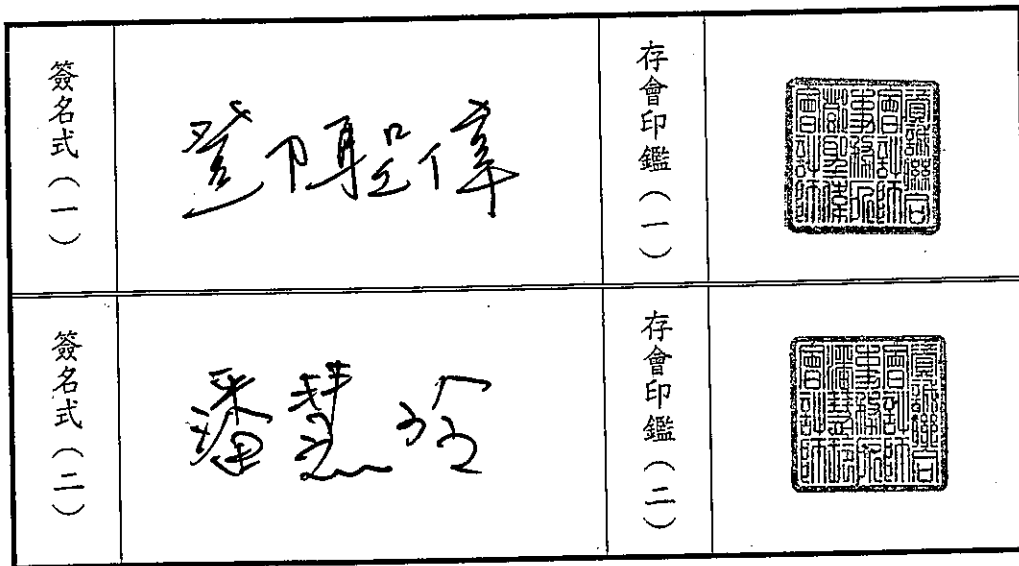 簽名式（一）
鄧聖偉
存會印鑑（一）
資誠聯合
會計師
事務所
鄧聖偉
會計師
簽名式（二）
潘慧玲
存會印鑑（二）
資誠聯合
會計師
事務所
潘慧玲
會計師